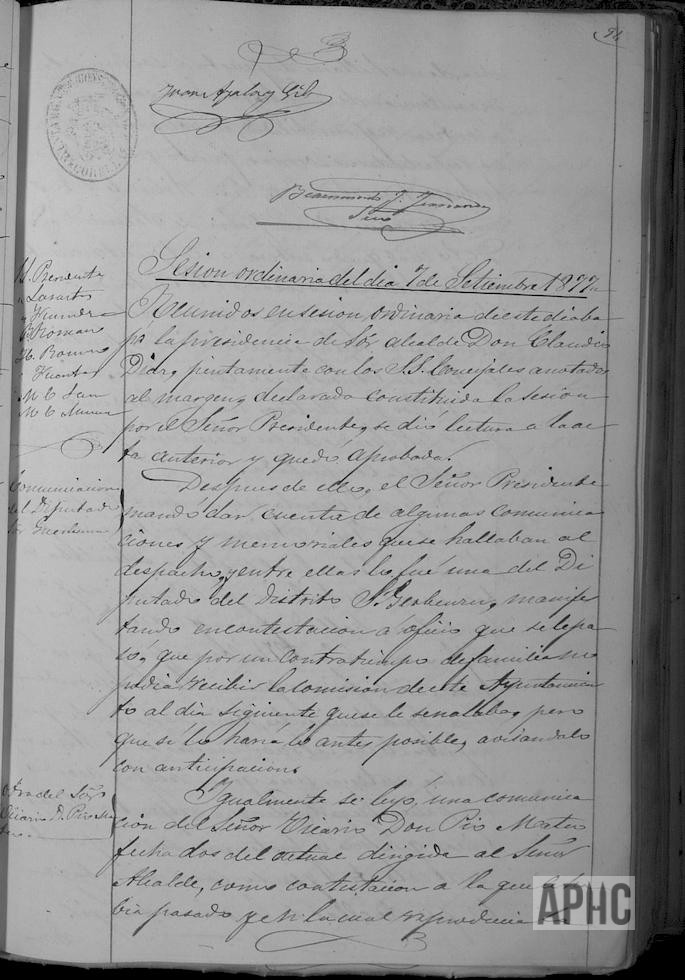 Juan Ayala y Gil
Sesion ordinaria del dia 7 de Setiembre 1877
S. Presidente
Roman
Comunicacion
del Diputado
Reunidos en sesion ordinaria de este dia ba
jo la presidencia de Sor Alcalde Don Claudio
Diaz, juntamente con los S.S. Concejales anotados
al margen, declarada constituida la sesion
por el Señor Presidente, se dió lectura a la ac
ta anterior y quedó aprobada.
Despues de ello, el Señor Presidente
mandó dar cuenta de algunas comunica
ciones y memoriales que se hallaban al
despacho, y entre ellas lo fué una del Di
putado del Distrito Sr. manifes
tando en contestacion á oficio que se le pa
só, que por un contratiempo de familia no
podia recibir la Comision de este Ayuntamien
to al dia siguiente que se le señalaba, pero
que si lo haria lo antes posible, avisandolo
con anticipacion.
Otra del Señor
Vicario D. Pio Ma
teo
Igualmente se leyó, una comunica
cion del Señor Vicario Don Pio Mateo
fecha dos del actual dirigida al Señor
Alcalde, como contestacion a la que la ha
bia pasado y en la cual reproducia
APHC